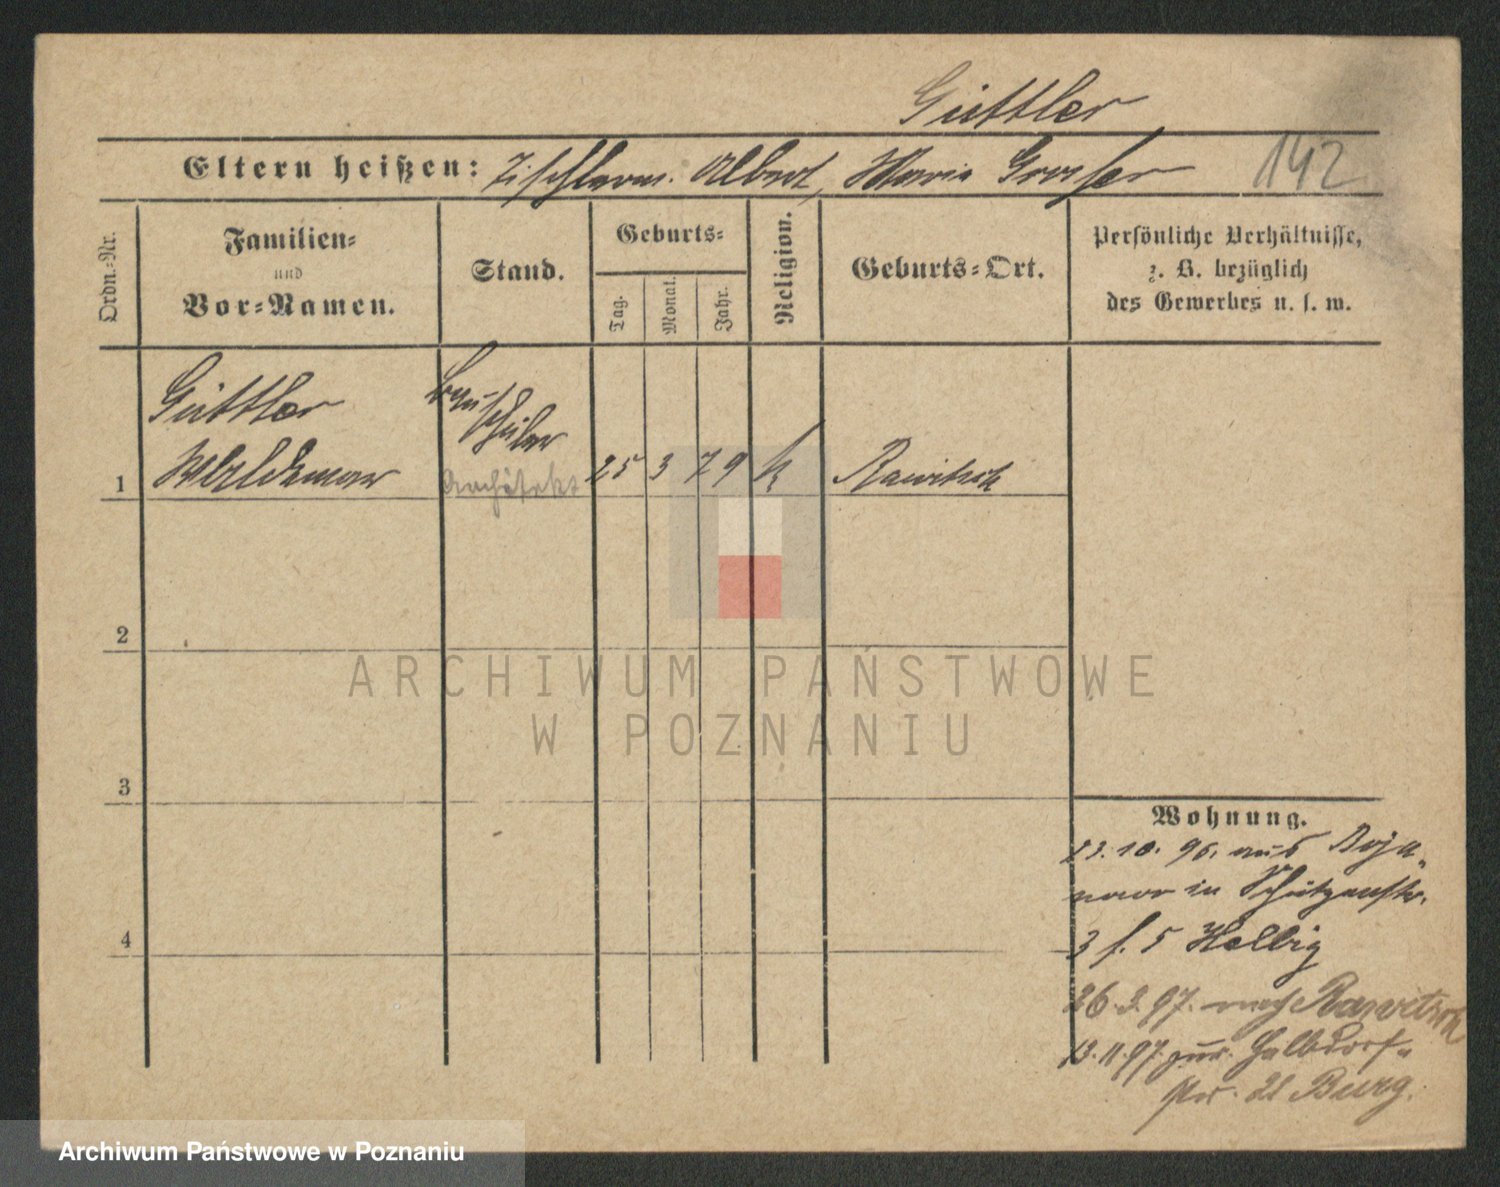 Güttler
Eltern heißen: Tischlerm. Albert, Marie
142
Ordn.-Nr.
Familien-
und
Vor-Namen.
Stand.
Geburts-
Tag.
Monat.
Jahr.
Religion.
Geburts-Ort.
Persönliche Verhältnisse,
z. B. bezüglich
des Gewerbes u. s. w.
Güttler
Bau-
schüler
1 Waldemar Architekt 25 3 79 k Rawitsch
2
ARCHIWUM PAŃSTWOWE
W POZNANIU
3
Wohnung.
10. 96. aus Boja-
nowo in Schützenstr.
3 f. 5 Helbig
26. 3. 97. nach Rawitsch
4
13. 11. 97 zur. Halbdorf-
str. 21 Burg.
Archiwum Państwowe w Poznaniu